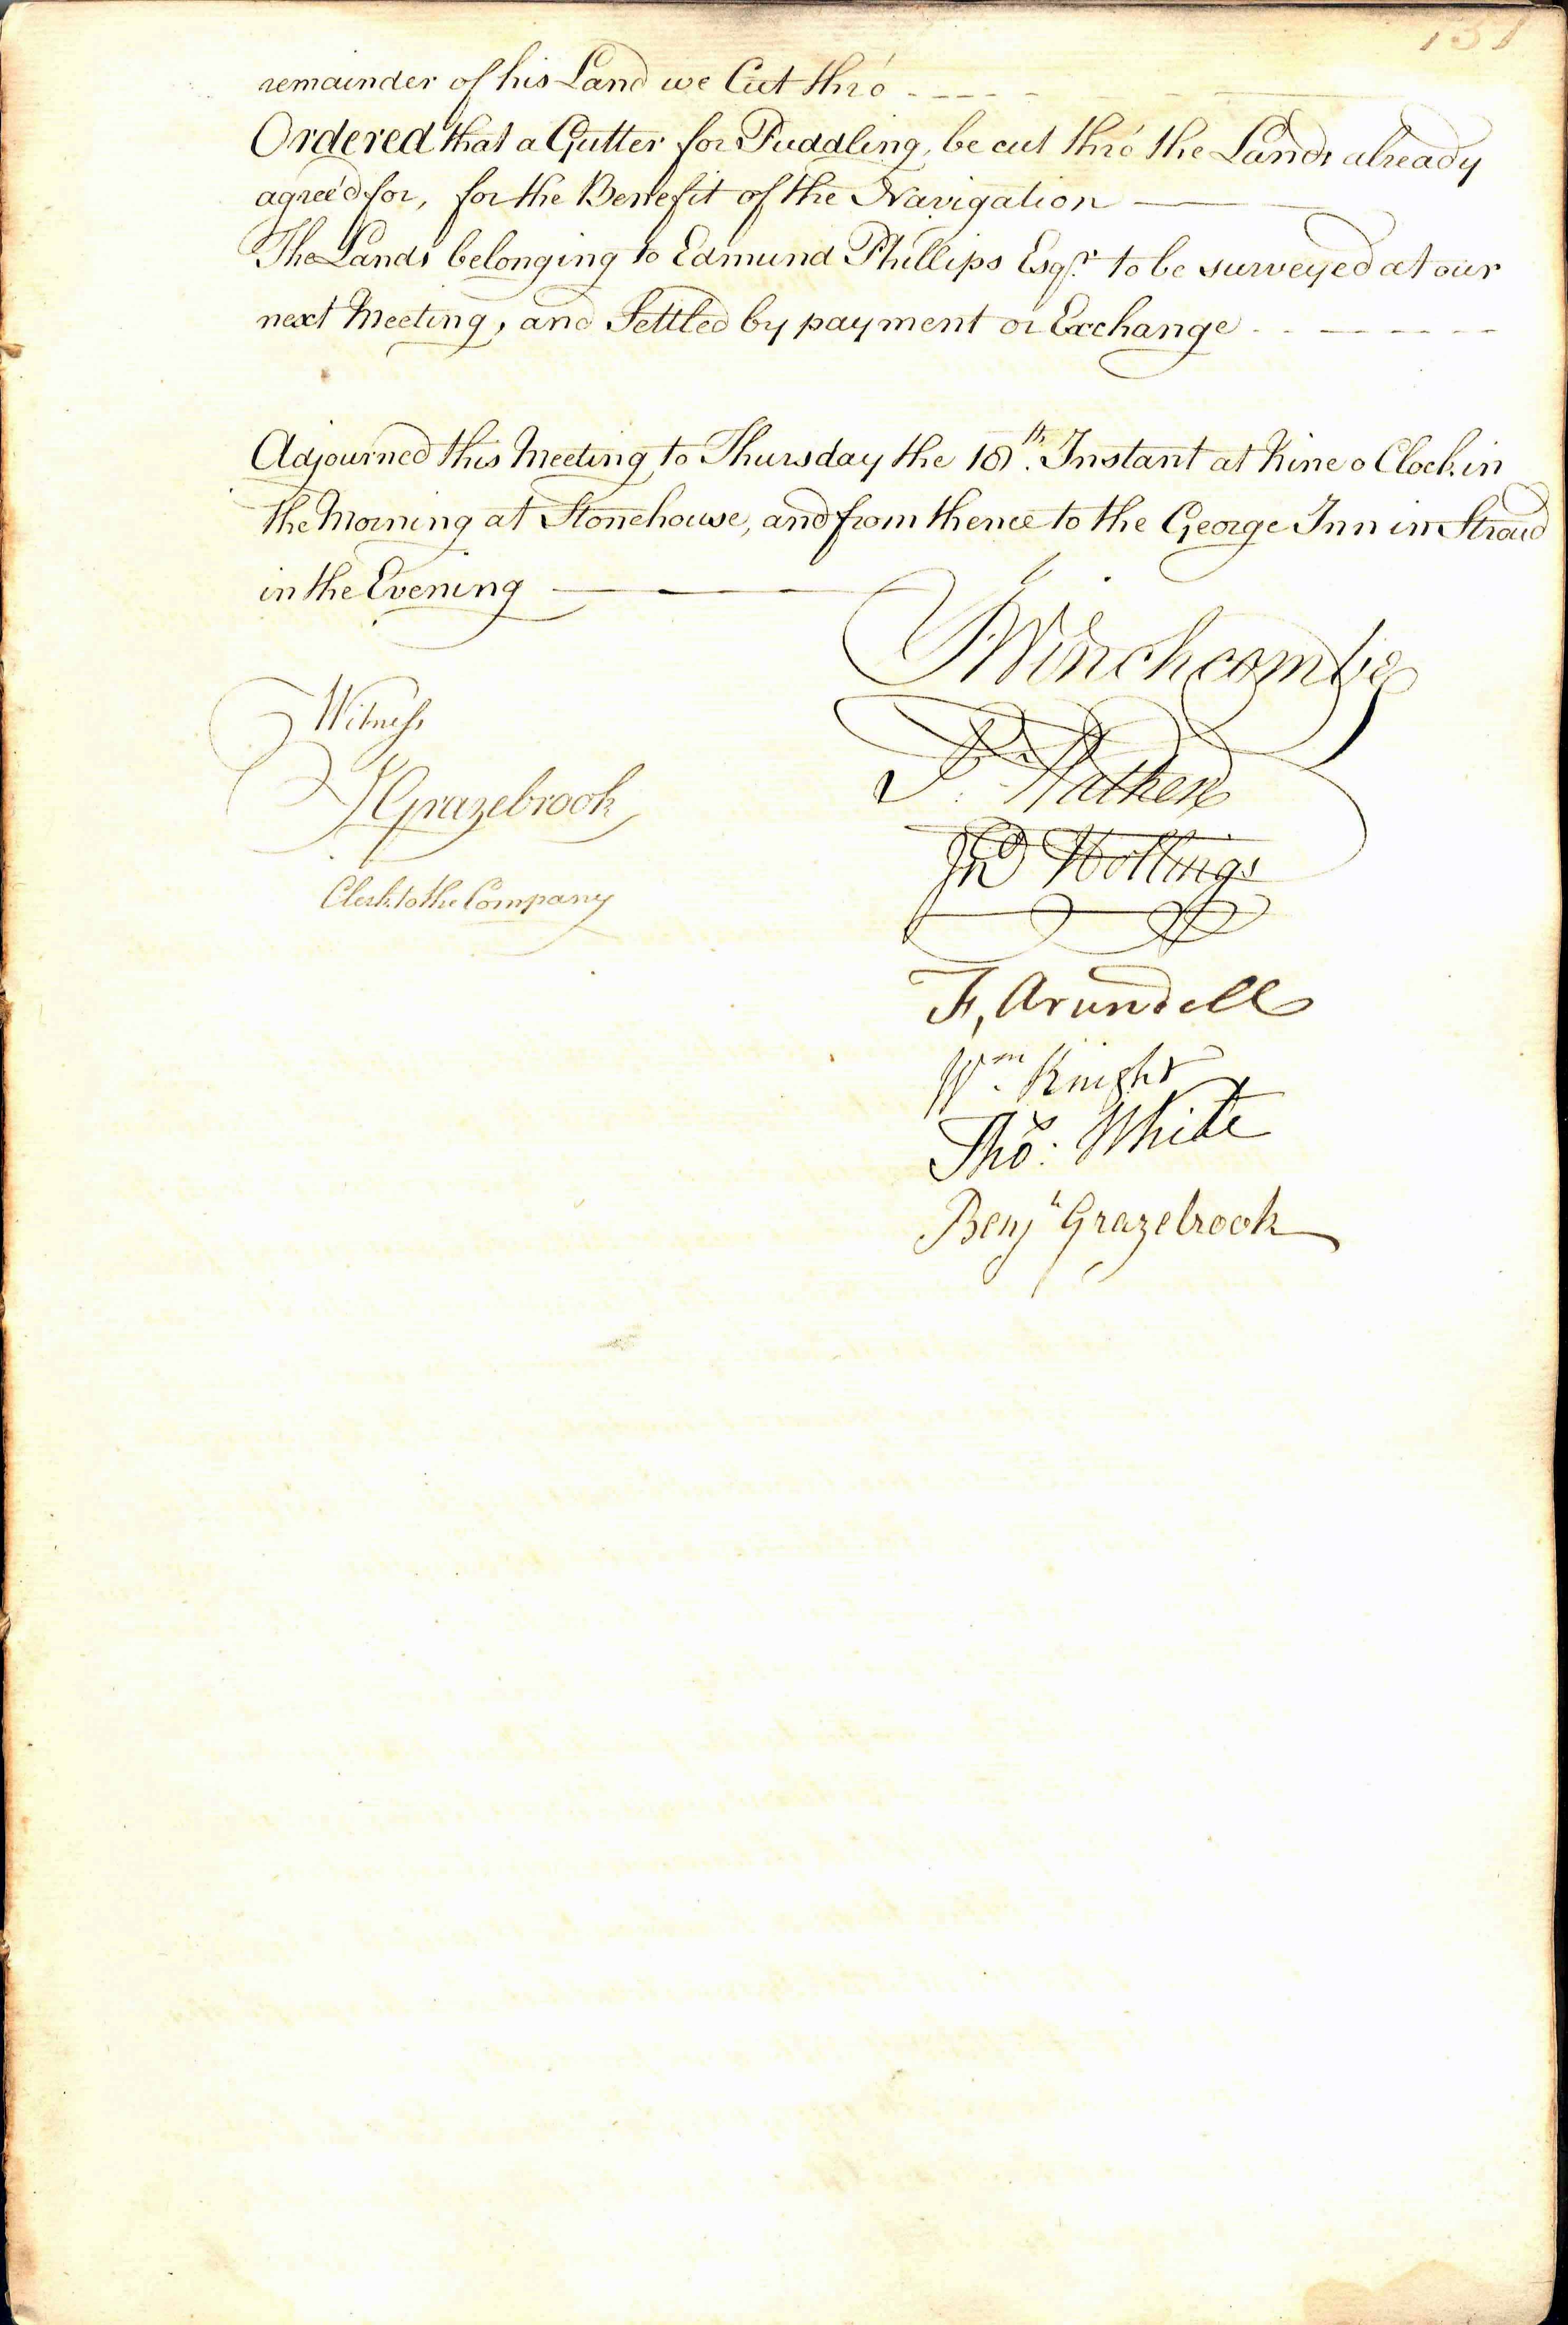 131
remainder of his Land we Cut thro'
Ordered that a Gutter for Puddling, be cut thro' the Lands already
agree'd for, for the Benefit of the Navigation
The Lands belonging to Edmund Phillips Esqr. to be surveyed at our
next Meeting, and Settled by payment or Exchange
Adjourned this Meeting to Thursday the 18th. Instant at Nine o Clock in
the Morning at Stonehouse, and from thence to the George Inn in Stroud
in the Evening
Winchcombe
Witness
P. Hathen
J Grazebrook
Jno Hollings
Clerk to the Company
F, Arundell
Wm. Knight
Thos: White
Benjn Grazebrook